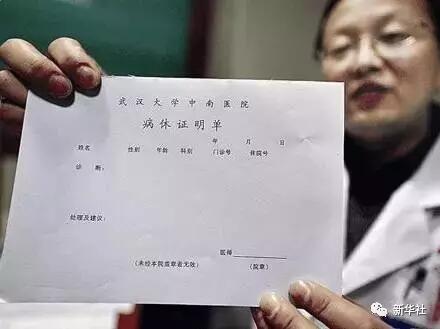 武汉大学中南医院
病休证明单
年 月 日
姓名 性别 年龄 科别 门诊号 住院号
诊断:
处理及建议:
医师
(未经本院盖章者无效) (院章)
新华社